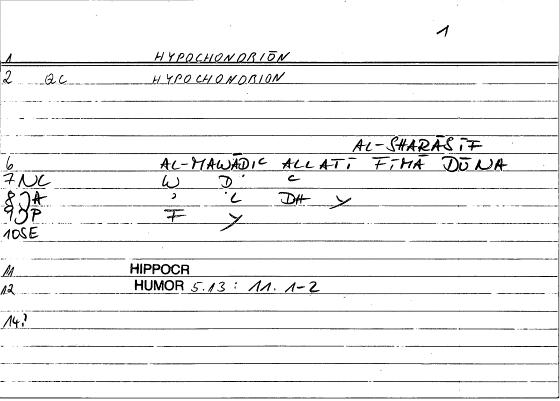 1
1 HYPOCHONDRIŌN
2 QC HYPOCHONDRION
AL-SHARĀSĪF
6 AL-MAWĀḌIC ALLATĪ FĪMĀ DŪNA
7 NC W Ḍ C
8 JA ʾ L DH Y
9 JP F Y
10 SE
11 HIPPOCR
12 HUMOR 5.13 : 11. 1-2
14?